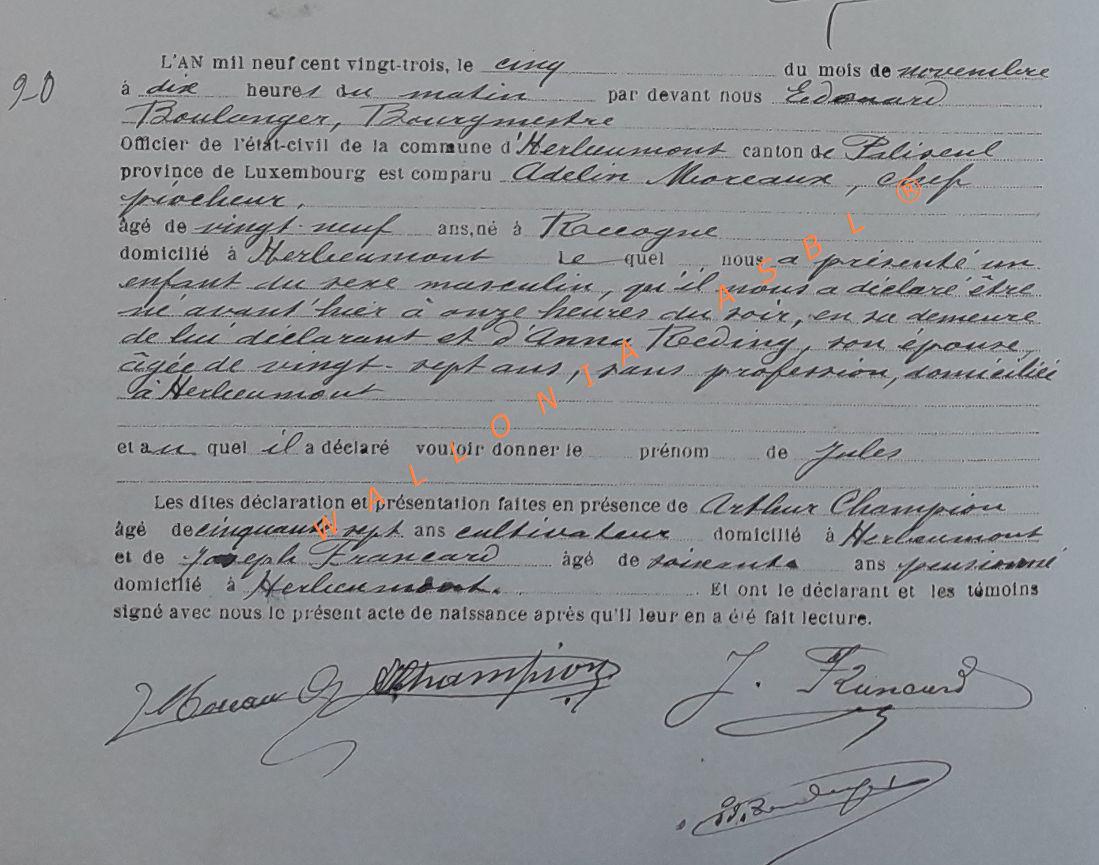 90
L'AN mil neuf cent vingt-trois, le cinq du mois de novembre
à dix heures du matin par devant nous Edouard
Boulanger, Bourgmestre
Officier de l'état-civil de la commune d'Herbeumont canton de Paliseul
province de Luxembourg est comparu Adelin Moreaux, chef
piocheur,
âgé de vingt-neuf ans, né à Recogne
domicilié à Herbeumont le quel nous a présenté un
enfant du sexe masculin, qu'il nous a déclaré être
né avant'hier à onze heures du soir, en sa demeure
de lui déclarant et d'Anna Reding, son épouse,
âgée de vingt-sept ans, sans profession, domiciliée
à Herbeumont
et au quel il a déclaré vouloir donner le prénom de Jules
Les dites déclaration et présentation faites en présence de Arthur Champion
âgé de cinquante sept ans cultivateur domicilié à Herbeumont
et de Joseph Francard âgé de soixante ans pensionné
domicilié à Herbeumont. Et ont le déclarant et les témoins
signé avec nous le présent acte de naissance après qu'il leur en a été fait lecture.
WALLONIA ASBL ®
Moreau A. Champion J. Francard
Ed. Boulanger